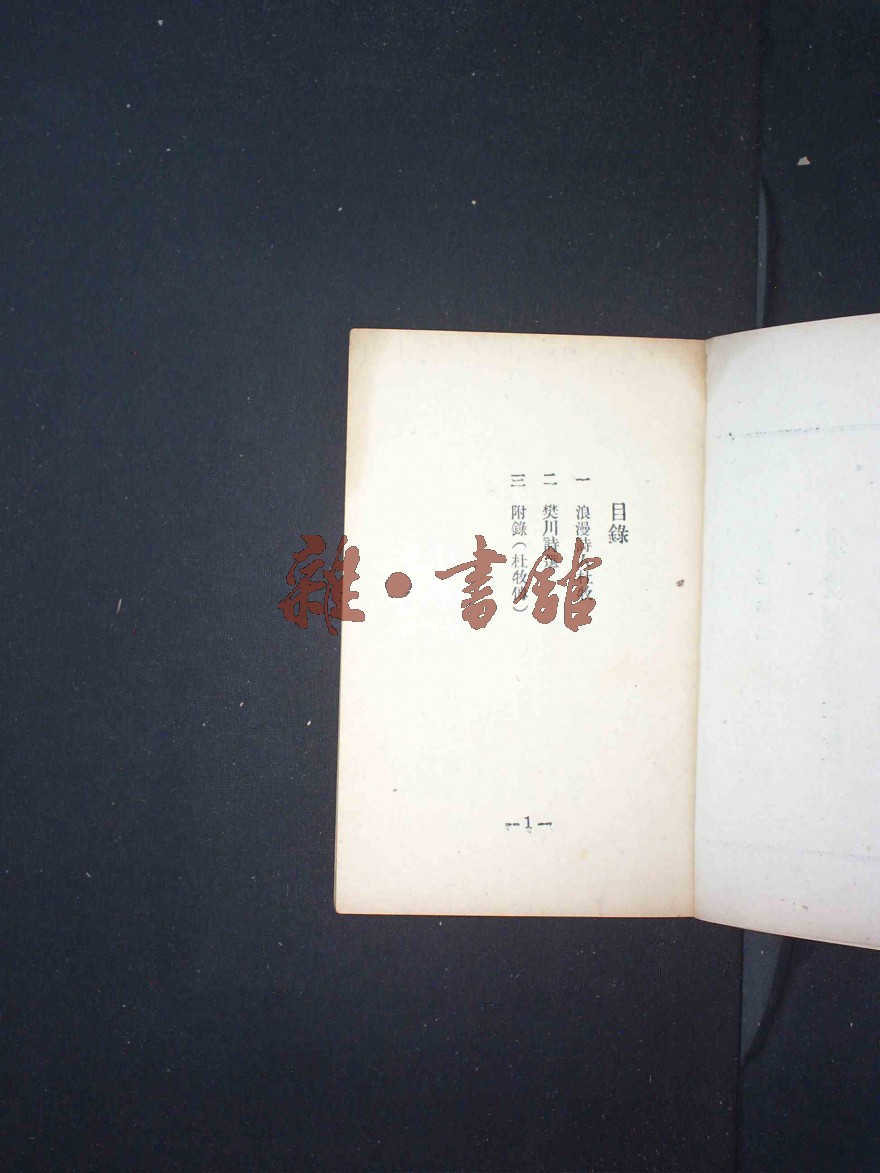 目錄
一 浪漫詩人杜牧
二 樊川詩選
三 附錄(杜牧傳)
--1--
雜·書館